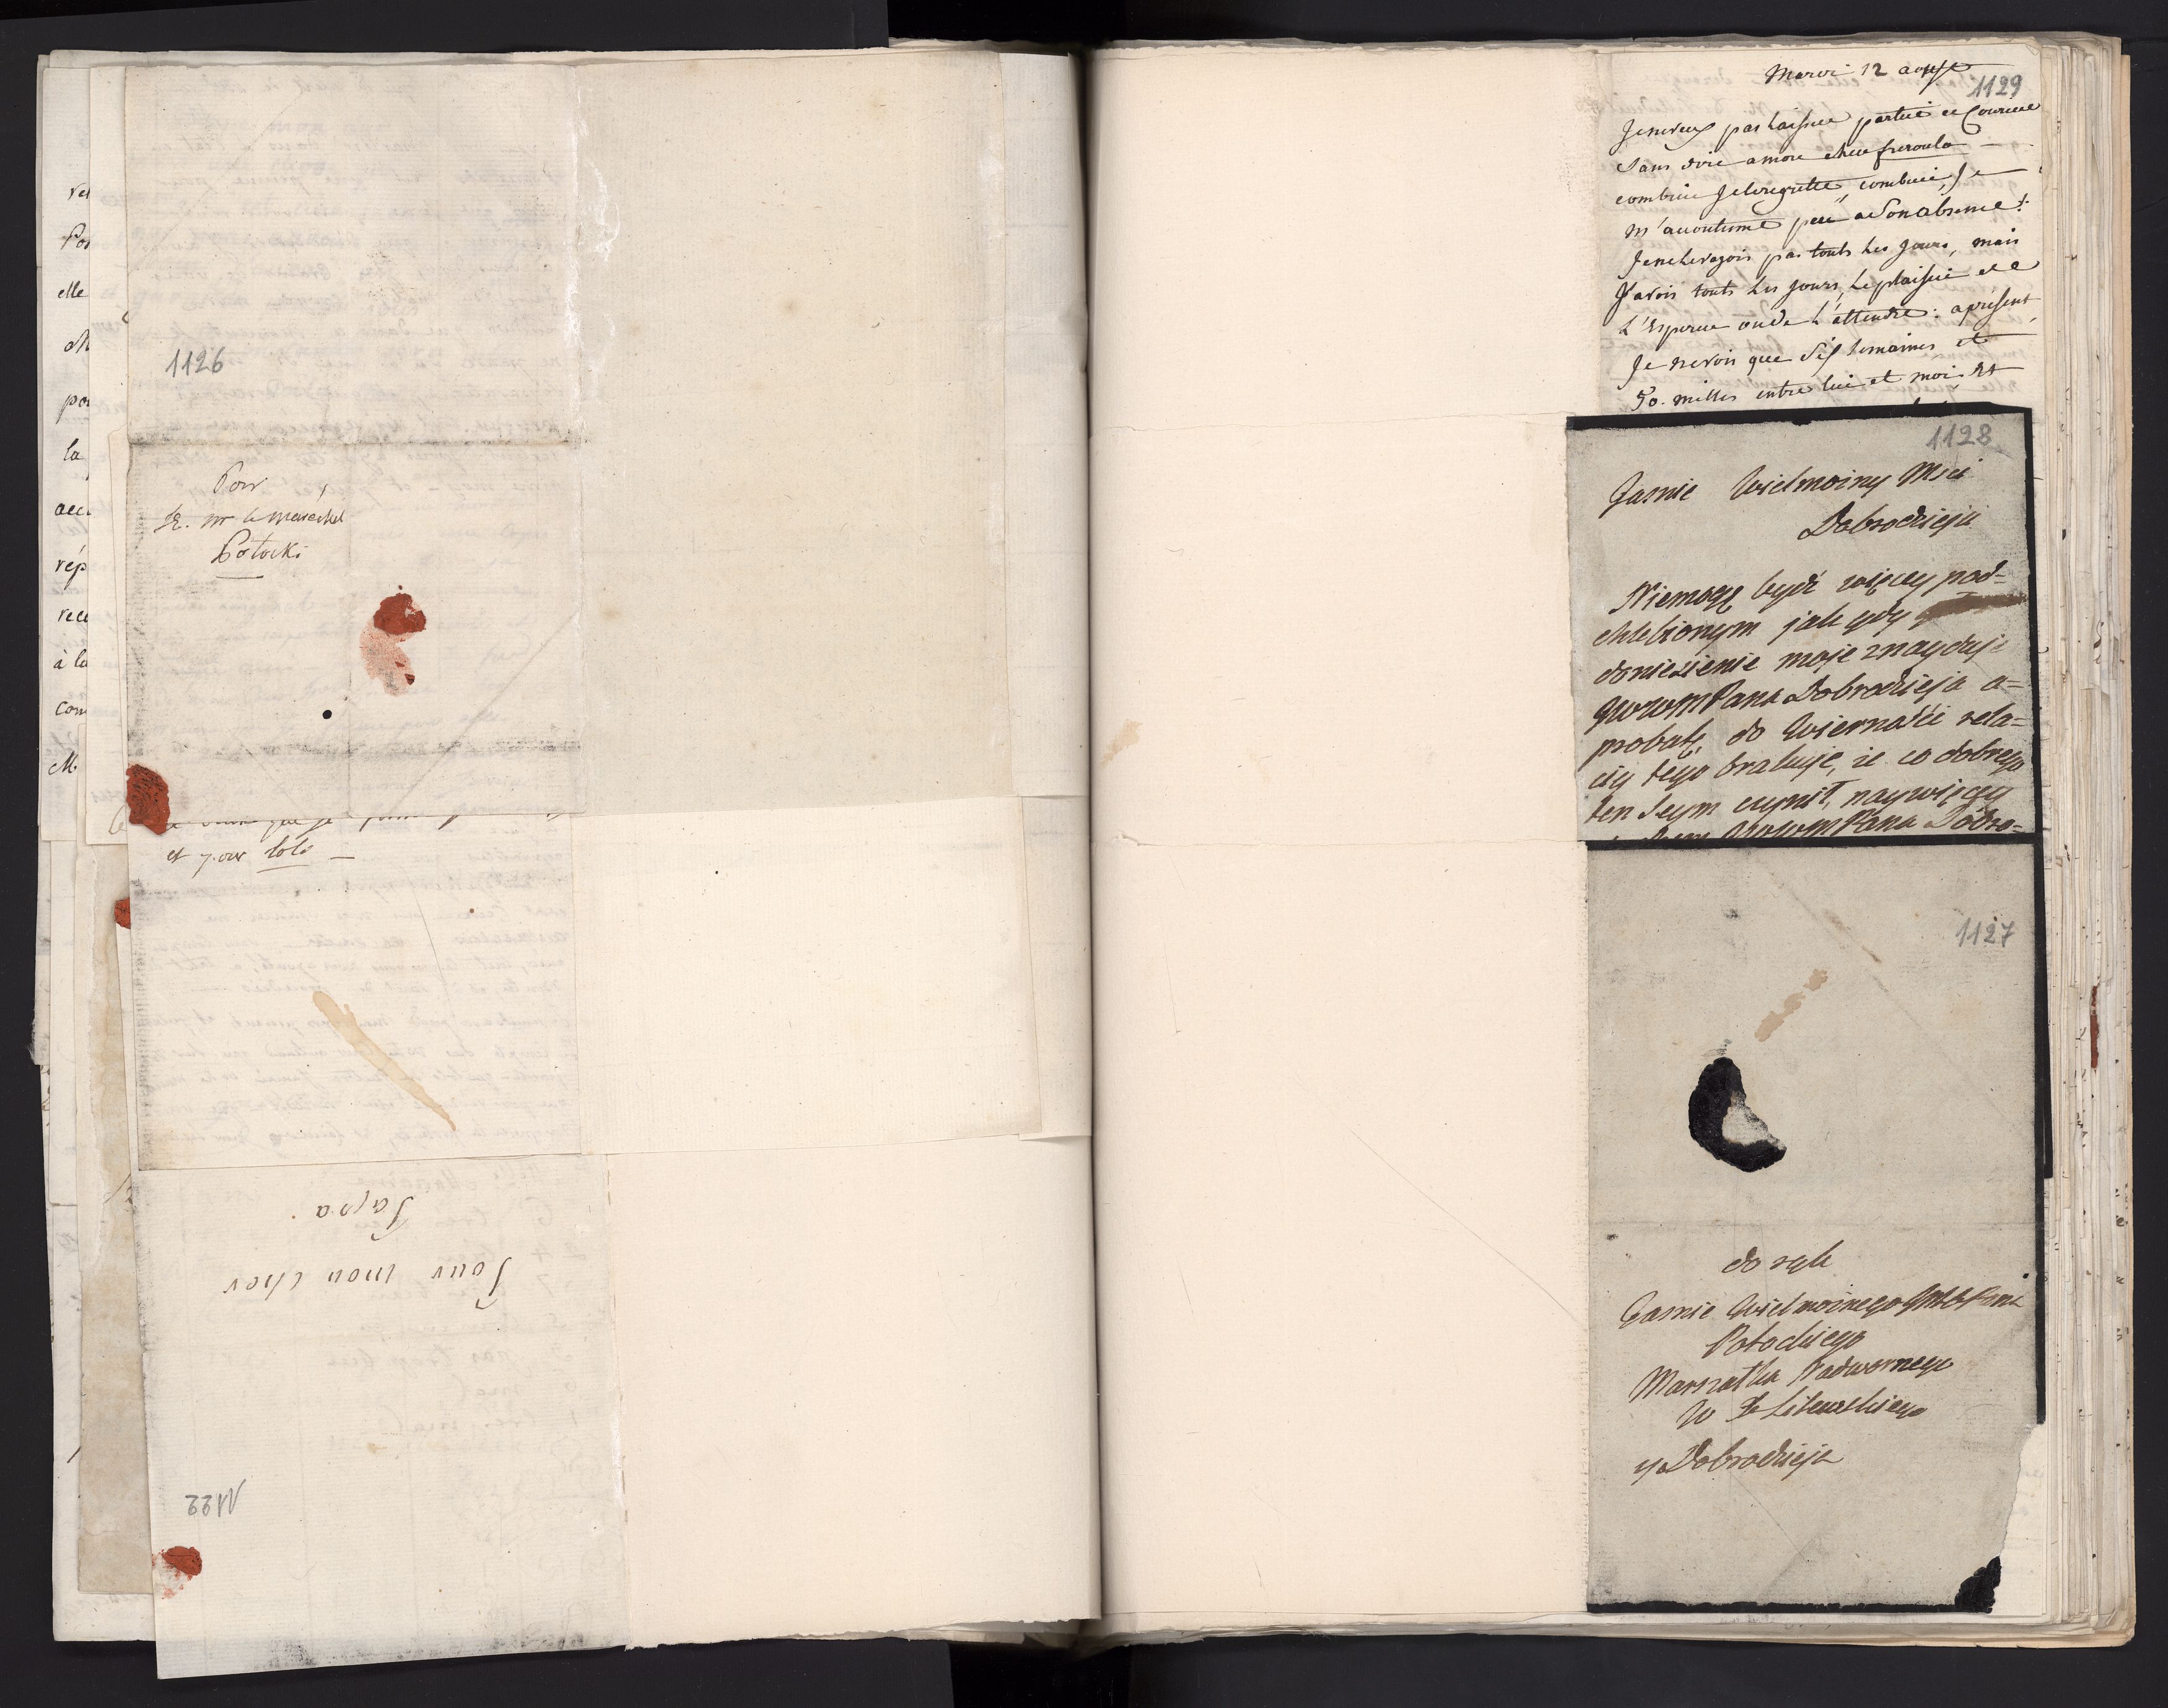 vel
Pou
elle
M
pou
la
acc
rép
rece
à la
com
M.
1126
Pour
S.E. mr le maréchal
Potocki
et pour lolo —
Pour mon cher
Papa.
1122
Mardi 12 auguste
1129
Je ne veux pas laisser partir ce Courier
sans dire a mon cher freroula —
combien Je le regrette, combien, Je
m'accoutume peu a Son absence!
Je ne le voyois pas touts les jours, mais
J'avois touts les jours, le plaisir et
L'Espoire ou de L'attendre: aprésent,
Je ne vois que dix semaines et
50. milles entre lui et moi, et
1128
Jasnie Wielmożny Mści
Dobrodzieju
Niemogę bydź więcey pod=
chlebionym jak gdy
doniesienie moje znayduje
JWWMPana Dobrodzieja a=
probatę, do wierności rela=
cij tego brakuje, że co dobrego
ten Seym czynił, naywięcey
JWWMPana Dobro=
1127
do rąk
Jasnie Wielmożnego
Potockiego
Marszałka Nadwornego
W X Litewskiego
y Dobrodzieja